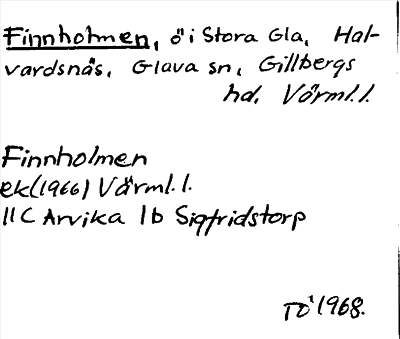 Finnholmen, ö i Stora Gla, Hal-
vardsnäs, Glava sn, Gillbergs
hd, Värml.l.
Finnholmen
ek(1966) Värml.l.
11 C Arvika 1b Sigfridstorp
TÖ 1968.